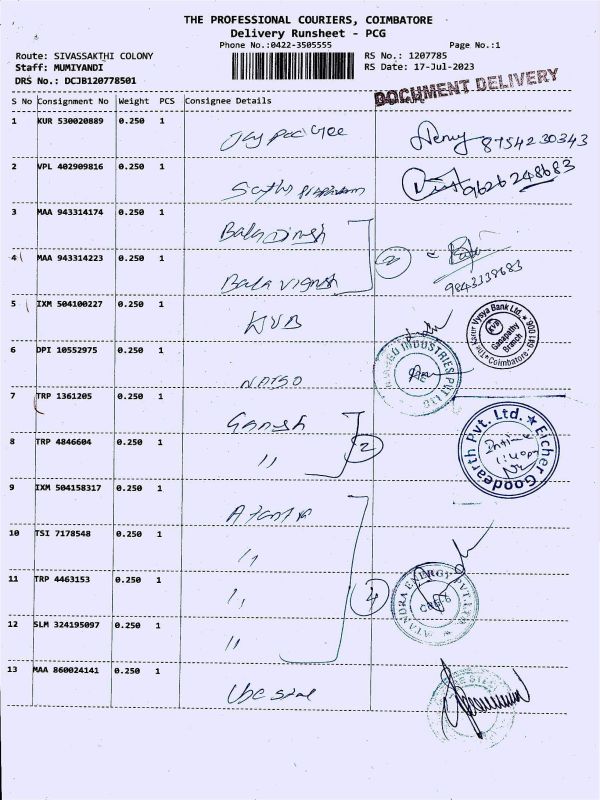 THE PROFESSIONAL COURIERS, COIMBATORE
Delivery Runsheet - PCG
Phone No.:0422-3505555 Page No.:1
Route: SIVASSAKTHI COLONY RS No.: 1207785
Staff: MUMIYANDI RS Date: 17-Jul-2023
DRS No.: DCJB120778501
DOCUMENT DELIVERY
S No Consignment No Weight PCS Consignee Details
1 KUR 530020889 0.250 1
8754230343
2 VPL 402909816 0.250 1
9626248683
3 MAA 943314174 0.250 1
Bala Dinesh
4 MAA 943314223 0.250 1
Bala Vignesh 2
9843339683
5 IXM 504100227 0.250 1
KVB
The Karur Vysya Bank Ltd. Ganapathy Branch Coimbatore - 641 006
6 DPI 10552975 0.250 1
INDUSTRIES PVT LTD
7 TRP 1361205 0.250 1
Ganesh
8 TRP 4846604 0.250 1
" 2
Eicher Goodearth Pvt. Ltd.
9 IXM 504158317 0.250 1
10 TSI 7178548 0.250 1
"
11 TRP 4463153 0.250 1
" 4
ATANDRA ENERGY PVT. LTD.
12 SLM 324195097 0.250 1
"
13 MAA 860024141 0.250 1